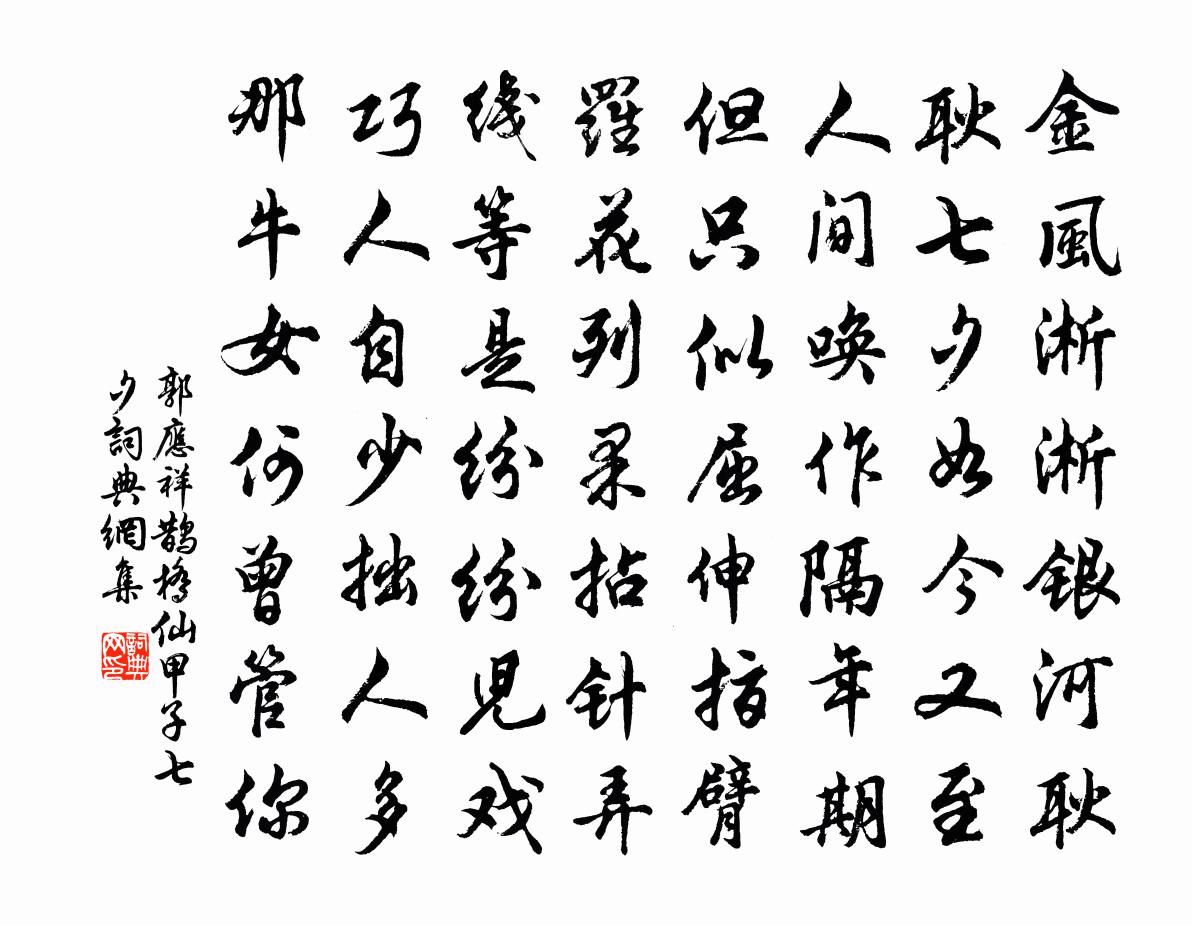 金風淅淅銀河耿
耿七夕如今又至
人间唤作隔年期
但只似屈伸指臂
羅花列果拈针弄
线等是纷纷兒戏
巧人自少拙人多
那牛女何曾管你
郭應祥鹊橋仙甲子七
夕詞典網集
詞典网印